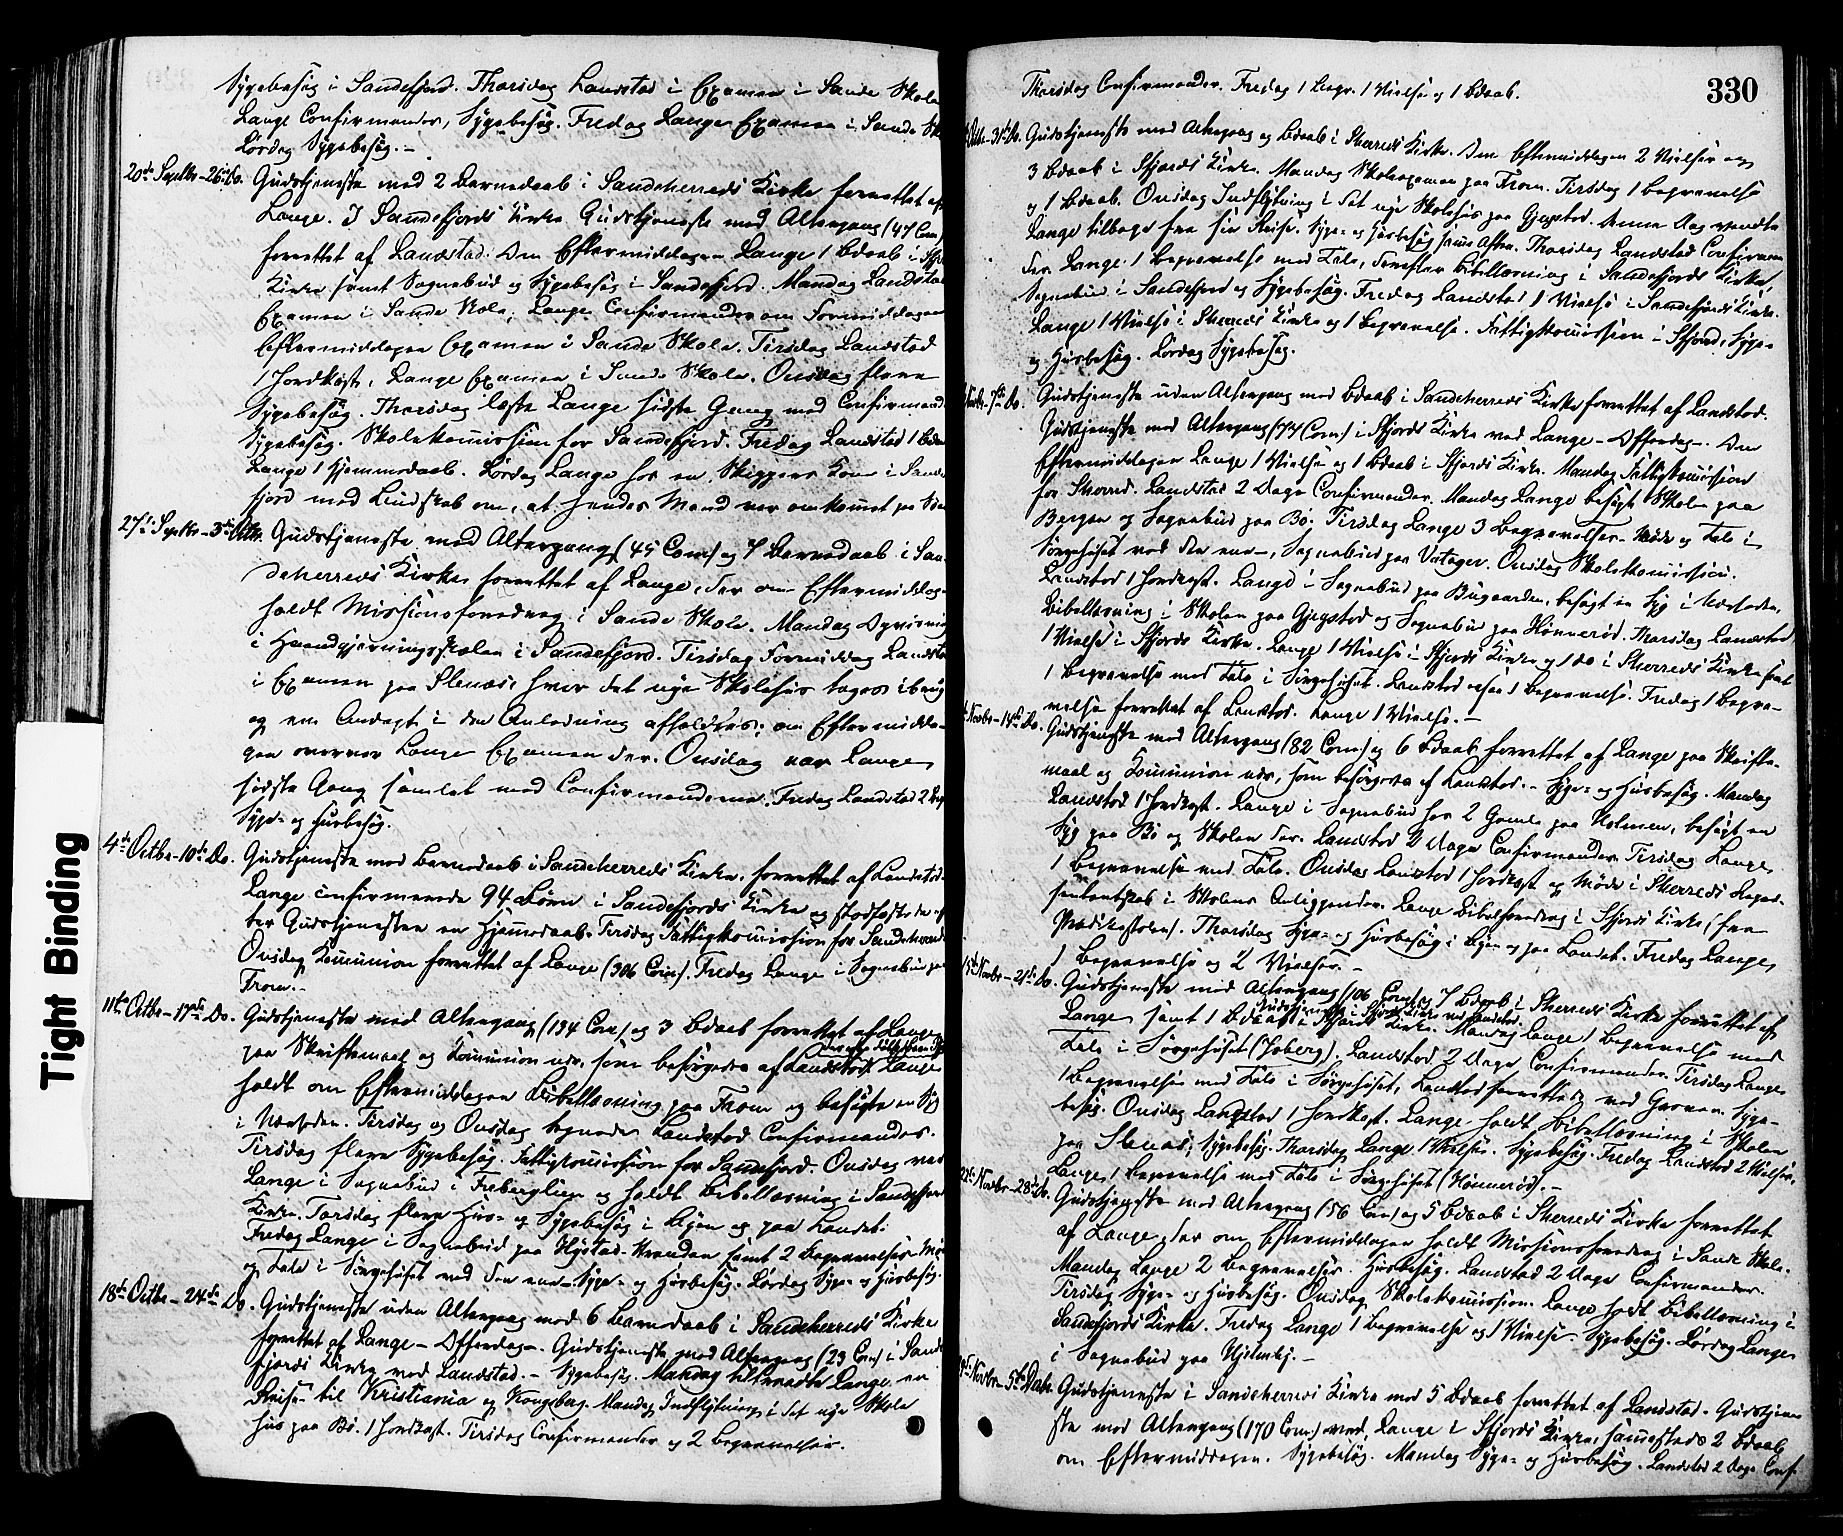 Sygebesøg i Sandefjord. Thorsdag Landstad i Examen i Sande Skole
Lange Confirmander, Sygebesøg. Fredag Lange Examen i Sande
Lørdag Sygebesøg. –
20de Septbr – 26de Do. Gudstjeneste med 2 Barnedaab i Sandeherreds Kirke forrettet af
Lange. I Sandefjords Kirke Gudstjeneste med Altergang (47 Com)
forrettet af Landstad. Om Eftermiddagen Lange 1 Bdaab i
Kirke samt Sognebud og Sygebesøg i Sandefjord. Mandag Landstad
Examen i Sande Skole, Lange Confirmander om Formiddagen
Eftermiddagen Examen i Sande Skole. Tirsdag Landstad
1 Jordkast, Lange Examen i Sande Skole. Onsdag flere
Sygebesøg. Thorsdag læste Lange sidste Gang med Confirmand
Sygebesøg. Skolekommission for Sandefjord. Fredag Landstad 1
Lange 1 Hjemmedaab. Lørdag Lange hos en Skippers Kone i Sande
fjord med Budskab om, at hendes Mand var omkommet paa
27de Septbr – 3die Octbr. Gudstjeneste med Altergang (45 Com) og 7 Barnedaab i San
deherreds Kirke forrettet af Lange, der om Eftermiddag
holdt Missionsforedrag i Sande Skole. Mandag
i Haandgjerningsskolen i Sandefjord. Tirsdag Formiddag Landstad
i Examen paa Stenæs, hvor det nye Skolehus toges i brug
og en Andagt i den Anledning afholdtes; om Eftermidda-
gen overvar Lange Examen der. Onsdag var Lange
sidste Gang samlet med Confirmanderne. Fredag Landstad 2
Syge- og Husbesøg.
4de Octbr – 10de Do. Gudstjeneste med Barnedaab i Sandeherreds Kirke, forrettet af Landstad.
Lange confirmerede 94 Børn i Sandefjords Kirke og stadfæstede ef
ter Gudstjenesten en Hjemmedaab. Tirsdag Fattigkommission for Sandeherred
Onsdag Kommunion forrettet af Lange (306 Com). Fredag Lange i Sognebud paa
From. –
11te Octbr – 17de Do. Gudstjeneste med Altergang (134 Com) og 3 Bdaab forrettet af Lange
paa Skriftemaal og Kommunion nær, som besørgedes af Landstad. Lange
holdt om Eftermiddagen Bibellæsning paa From og besøgte en Syg
i Næsheden. Tirsdag og Onsdag Landstad Confirmander.
Tirsdag flere Sygebesøg. Fattigkommission for Sandefjord. Onsdag var
Lange i Sognebud i og holdt Bibellæsning i Sandefjords
Kirke. Torsdag flere Hus- og Sygebesøg i Byen og paa Landet.
Fredag Lange i Sognebud paa Hystad samt 2 Begravelser. Møde
og Tale i Sørgehuset ved den ene – Syge- og Husbesøg. Lørdag Syge- og Husbesøg.
18de Octbr – 24de Do. Gudstjeneste uden Altergang med 6 Barnedaab i Sandeherreds Kirke
forrettet af Lange – Offerdag –. Gudstjeneste med Altergang (23 Com) i Sande
fjords Kirke ved Landstad. – Sygebesøg. Mandag tiltraadte Lange en
Reise til Kristiania og Kongsberg. Mandag Indflytning i det nye Skole
hus paa Bø. 1 Jordkast. Tirsdag Confirmander og 2 Begravelser.
330
Thorsdag Confirmander. Fredag 1 Begr. 1 Vielse og 1 Bdaab.
Octbr – 31te Do. Gudstjeneste med Altergang og Bdaab i Sherreds Kirke. Om Eftermiddagen 2 Vielser og
3 Bdaab i Sfjords Kirke. Mandag Skoleexamen paa From. Tirsdag 1 Begravelse
og 1 Bdaab. Onsdag Indflytning i det nye Skolehus paa Gjegstad. Samme Dag vendte
Lange tilbage fra sin Reise. Syge- og Husbesøg samme Aften. Thorsdag Landstad Confirman
der. Lange 1 Begravelse med Tale, derefter Bibellæsning i Sandefjords Kirke,
Sognebud i Sandefjord og Sygebesøg. Fredag Landstad 1 Vielse i Sandefjords Kirke.
Lange 1 Vielse i Sherreds Kirke og 1 Begravelse. Fattigkommission i Sfjord, Syge-
og Husbesøg. Lørdag Sygebesøg.
Novbr – 7de Do. Gudstjeneste uden Altergang med Bdaab i Sandeherreds Kirke forrettet af Landstad.
Gudstjeneste med Altergang (Com) i Sfjords Kirke ved Lange – Offerdag –. Om
Eftermiddagen Lange 1 Vielse og 1 Bdaab i Sfjords Kirke. Mandag Fattigkommission
for Sherred. Landstad 2 Dage Confirmander. Mandag Lange besøgt Skolen paa
Bergan og Sognebud paa Bø. Tirsdag Lange 3 Begravelser – Møde og Tale i
Sørgehuset ved den ene –, Sognebud paa Virtager. Onsdag Skolekommission.
Landstad 1 Jordkast. Lange i Sognebud paa Bugaarden, besøgt en Syg i Næsheden,
Bibellæsning i Skolen paa Gjegstad og Sognebud paa Hønnerød. Thorsdag Landstad
1 Vielse i Sfjords Kirke. Lange 1 Vielse i Sfjords Kirke og 1 do i Sherreds Kirke samt
1 Begravelse med Tale i Sørgehuset. Landstad ogsaa 1 Begravelse. Fredag 1 Begra-
velse forrettet af Landstad. Lange 1 Vielse. –
Novbr – 14de Do. Gudstjeneste med Altergang (82 Com) og 6 Bdaab forrettet af Lange paa Skrifte-
maal og Kommunion nær, som besørgedes af Landstad. – Syge- og Husbesøg. Mandag
Landstad 1 Jordkast. Lange i Sognebud hos 2 Gamle paa Holmen, besøgt en
Syg paa Bø og Skolen der. Landstad 2 Dage Confirmander. Tirsdag Lange
1 Begravelse med Tale. Onsdag Landstad 1 Jordkast og Møde i Sherreds Repræ-
sentantskab i Skolens Anliggender. Lange Bibelforedrag i Sfjords Kirke (fra
Prædikestolen). Thorsdag Syge- og Husbesøg i Byen og paa Landet. Fredag Lange
1 Begravelse og 2 Vielser. –
15de Novbr – 21de Do. Gudstjeneste med Altergang (106 Com) og 7 Bdaab i Sherreds Kirke forrettet af
Gudstjeneste i Sfjords Kirke ved Landstad.
Lange samt 1 Bdaab i Sfjords Kirke. Mandag Lange 1 Begravelse med
Tale i Sørgehuset (Joberg). Landstad 2 Dage Confirmander. Tirsdag Lange
1 Begravelse med Tale i Sørgehuset, Landstad forrettede ved Graven. Syge-
besøg. Onsdag Landstad 1 Jordkast. Lange holdt Bibellæsning i Skolen
paa Stenæs; Sygebesøg. Thorsdag Lange 1 Vielse. Sygebesøg. Fredag Landstad 2 Vielser,
Lange 1 Begravelse med Tale i Sørgehuset (Hønnerød). –
22de Novbr – 28de Do. Gudstjeneste med Altergang (56 Com) og 5 Bdaab i Sherreds Kirke forrettet
af Lange, der om Eftermiddagen holdt Missionsforedrag i Sande Skole.
Mandag Lange 2 Begravelser. Husbesøg. Landstad 2 Dage Confirmander.
Tirsdag Syge- og Husbesøg. Onsdag Skolekommission. Lange holdt Bibellæsning i
Sandefjords Kirke. Fredag Lange 1 Begravelse og 1 Vielse – Sygebesøg. Lørdag Lange
i Sognebud paa Hjelmby. –
Novbr – 5te Decbr. Gudstjeneste i Sandeherreds Kirke med 5 Bdaab forrettet af Landstad. Gudstjene
ste med Altergang (170 Com) ved Lange i Sfjords Kirke, sammesteds 2 Bdaab
om Eftermiddagen. Sygebesøg. Mandag Syge- og Husbesøg. Landstad 2 Dage Conf.
Tight Binding